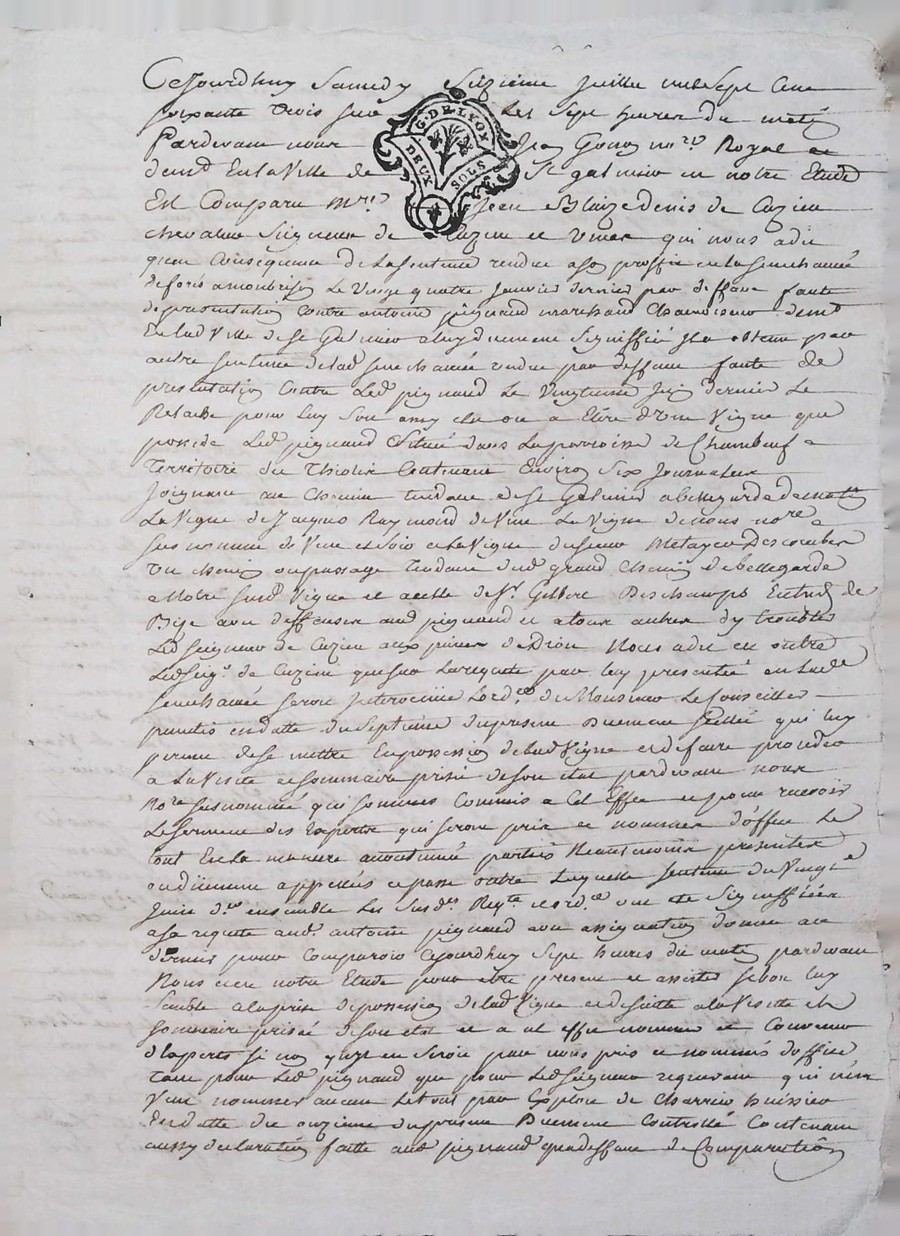 Cejourdhuy Samedy Seizieme Juillet mil Sept Cent
soixante trois sur les Sept heures du matin
Pardevant nous Jean Gonon no.re Royal et
demt En la Ville de St galmier en notre Etude
Est Comparu Mre Jean Blaize denis de Cuzieu
chevalier Seigneur de Cuzieu et Unias qui nous a dit
qu'en Consequence de la Sentence rendue a son proffit en la Senechaussée
de forés a montbrison Le Vingt quatre Janvier dernier par deffaut faute
de presentation contre antoine pignand marchand Chamoiseur demt
En lad Ville de St Galmier a luy duement Signiffiée Il a obtenu par
autre Sentence de lad Senechaussée rendue par deffaut faute de
presentation Contre Led pignand Le Vingtieme Juin dernier Le
Relache pour luy Son amy elu ou a Elire d'Une Vigne que
possede Led pignand Située dans La parroisse de Chambeuf
Territoire du Contenant Environ Six Journaliers
Joignant au Chemin tendant de St Galmier a bellegarde de matin
La Vigne de Jacques Raymond de Vent La Vigne de nous no.re
susnommé de Vent et Soir et La Vigne du Sieur
Un chemin ou passage tendant du grand Chemin de bellegarde
a Notre Susd Vigne et a celle de Sr Gilbert Deschamps Entred de
Bize avec deffenses aud pignand et a tous autres d'y troubler
Led Seigneur de Cuzieu aux peines de droit Nous a dit en outre
Led Seigr de Cuzieu que sur La requete par luy presentée en Lad
Senechaussée Seroit Intervenüe L'ordce de Monsieur Le Conseiller
punctis en datte du Septieme du present Duement Scellée qui luy
permet de se mettre En possession de lad Vigne et de faire proceder
a La Visite et Sommaire prisée de son etat pardevant nous
No.re Susnommé qui Sommes Commis a Cet Effet et pour recevoir
Le Serment des Experts qui Seront pris et nommés d'office Le
tout En la maniere accoutumée parties Neantmoins presentes
ou düement appellées et passé outre Laquelle Sentence du Vingt
Juin d.er ensemble Les Susd.es Reqte et ordce ont eté Signiffiées
a sa requete aud antoine pignand avec assignation donnée au
dernier pour Comparoir Cejourdhuy Sept heures du matin pardevant
Nous et en notre Etude pour etre present et assister Si bon luy
Semble a la prise de possession de lad Vigne et de Suitte a la Visite et
Sommaire prisée de son etat et a cet effet nommer et Convenir
d'Experts Si non qu'il en Seroit par nous pris et nommés d'office
tant pour Led pignand que pour Led Seigneur requerant qui n'en
Veut nommer aucun Le tout par Exploit de Charrein huissier
En datte du onzieme du present Duement Controllé Contenant
aussy declaration faitte aud pignand qu'a deffaut de Comparution
G. DE. LYON
DEUX SOLS